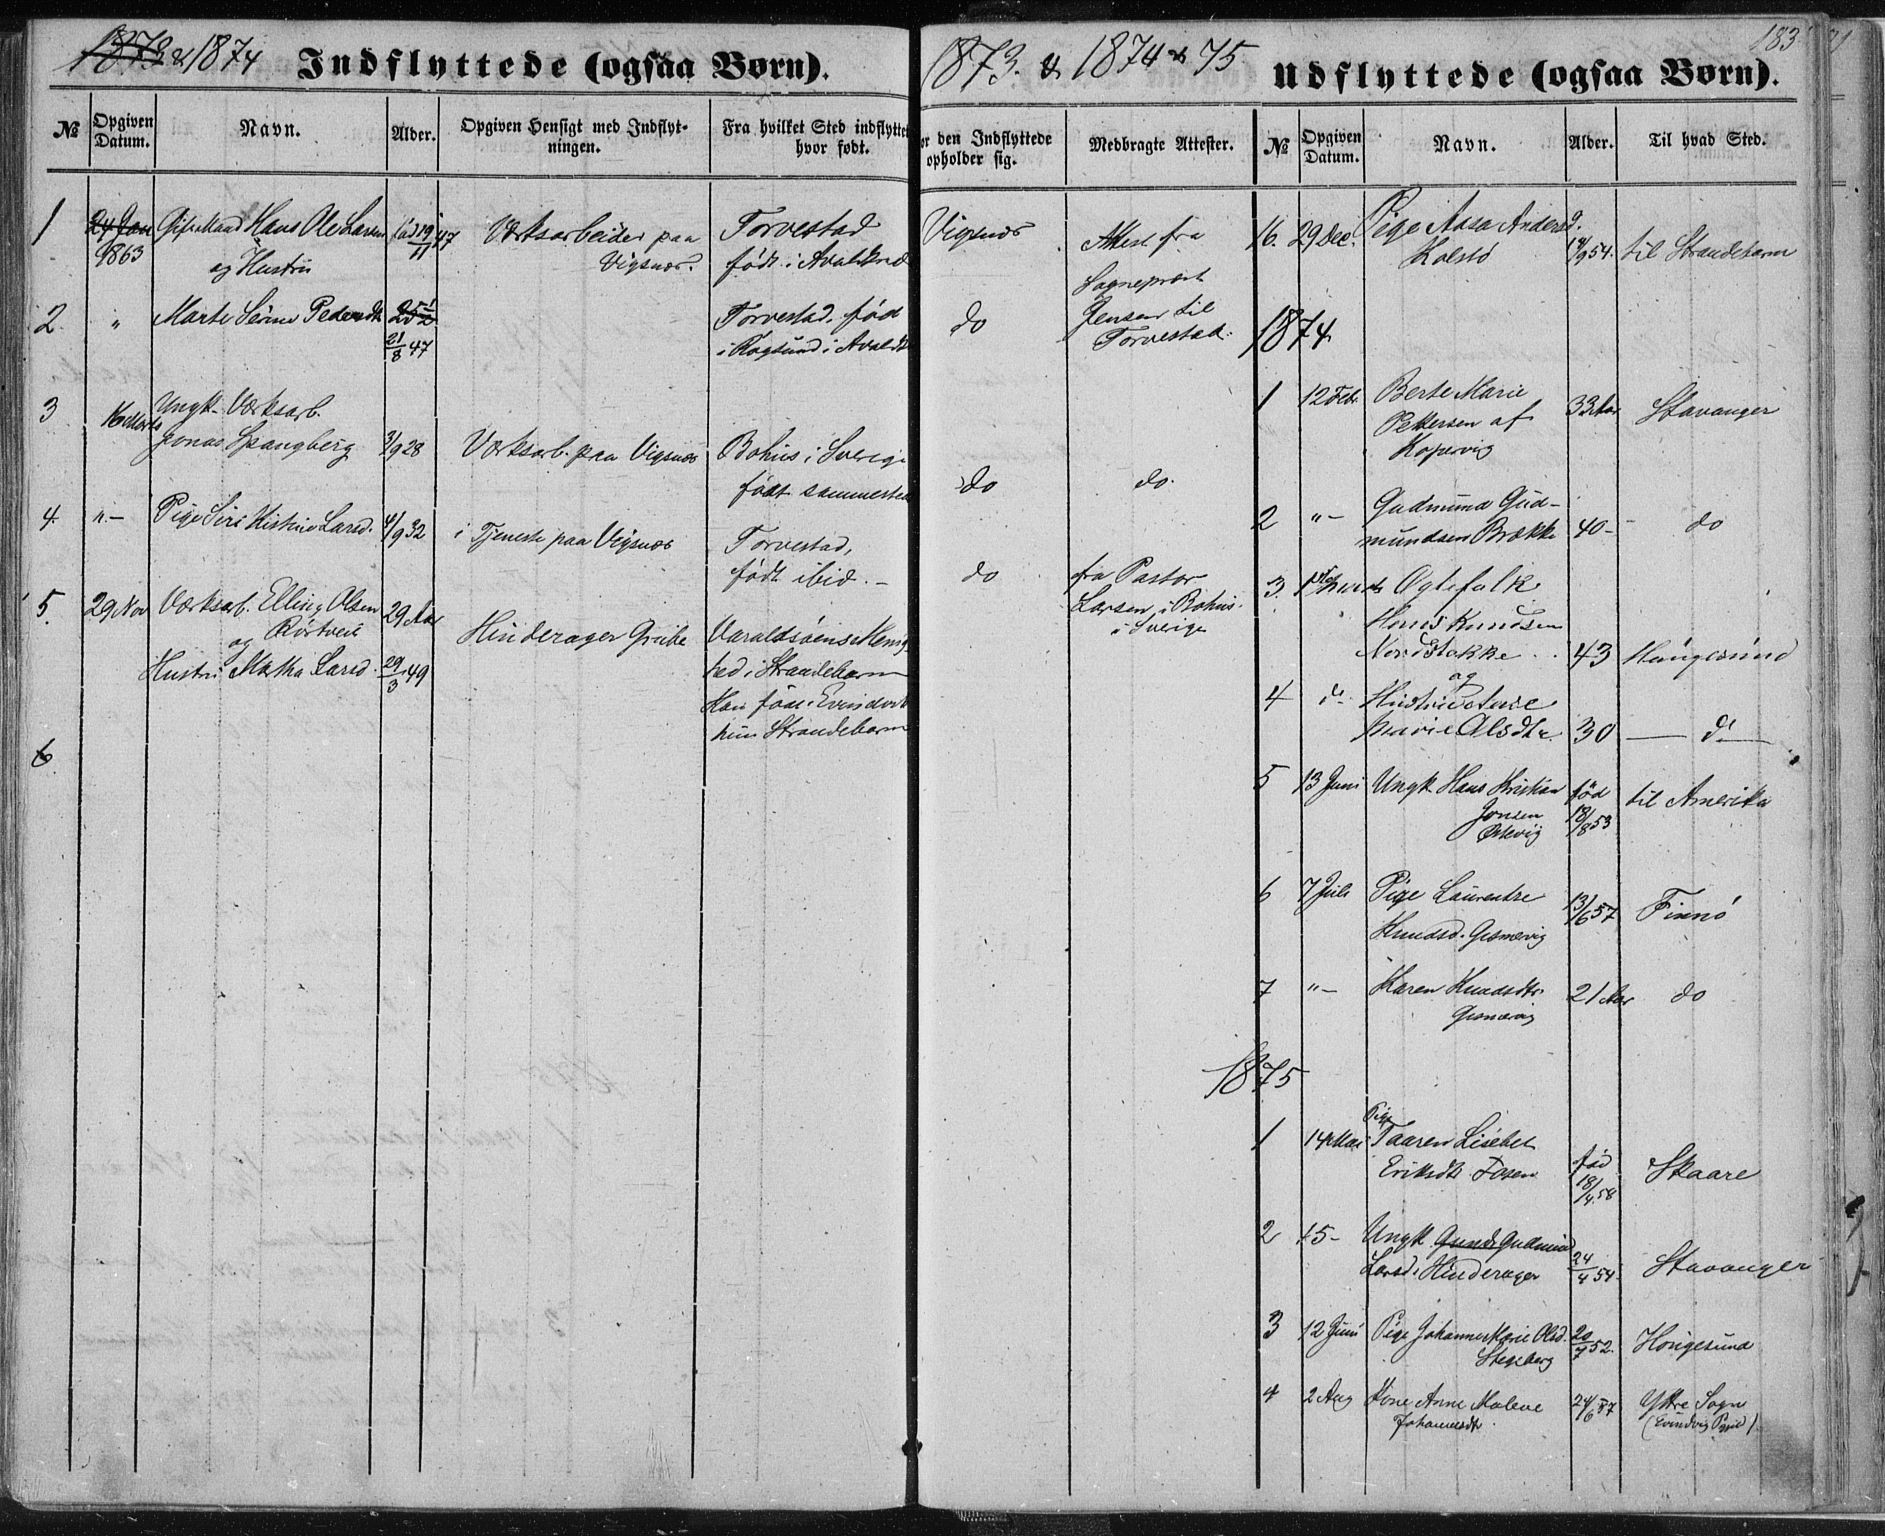 1873 & 1874 Indflyttede (ogsaa Børn).
№
Opgiven Datum.
Navn.
Alder.
Opgiven Hensigt med Indflyt-
ningen.
Fra hvilket Sted indflyttet
hvor født.
1 24 Jan Gift Mand Hans Ole Larsen fød 19/11 47 Værksarbeider paa Torvestad
1863 og Hustru Vigsnæs. født i Avaldsnæs
2. " Marte Serine Pedersdtr 25 1/2 Torvestad fød
21/8 47 i Røgsund i Avalds
3 16 Marts Ungk. Værksarb.
Jonas Spangberg 3/9 28 Værksarb. paa Vigsnæs Bohus i Sverige
født sammested
4. "- Pige Siri Kistine Larsd. 4/9 32 i Tjeneste paa Vigsnæs Torvestad,
født ibid. -
5. 29 Nov Værksarb. Elling Olsen 29 Aar
og Hinderager Grube Varaldsøens Menig
Hustru Martha Larsd. 29/3 49 hed i Strandebarm
Han født i Evindvik
hun Strandebarm
6.
1873. & 1874 & 75 Udflyttede (ogsaa Børn).
183
or den Indflyttede
opholder sig.
Medbragte Attester.
№
Opgiven Datum.
Navn.
Alder.
Til hvad Sted.
Vigsnæs Attest fra
Sogneprest
do Jensen til
Torvestad.
do do.
do fra Pastor
Larsen i Bohus
i Sverige
16. 29 Dec. Pige Aasa Andersd.
Kolstø 9 54. til Strandebarm
1874
1 12 Febr. Berte Marie
Pettersen af 33 Aar Stavanger
Kopervig
2 "- Gudmund Gud-
mundsen Brække 40 - do
3. Ægtefolk
Hans Knudsen
Nordstokke 43 Haugesund
og
4 do Hustrue
Marie Olsdtr. 30 — do —
5 13 Juni Ungk. Hans Kristian fød til Amerika
Jonsen 18/8 53
6 7 Juli Pige Laurentze 13/6 57 Finnø
Knudsd. Gismervig
7 "- Karen Knudsdtr 21 Aar do
Gismervig
1875
1 14 Mai Pige Taaren Lisebet
Eriksdtr Fosen fød 18/4 58 Skaare
2 15 - Ungk. Gunde Gudmund
Larsd. Hinderager 24/4 54. Stavanger
3 12 Juni Pige Johanne Marie Olsd. 20/7 52. Haugesund
Stegeberg
4 2 Aug Kone Anne Malene 24/6 37 Yttre Sogn
Johannesdtr. (Evindvig Pgjeld)